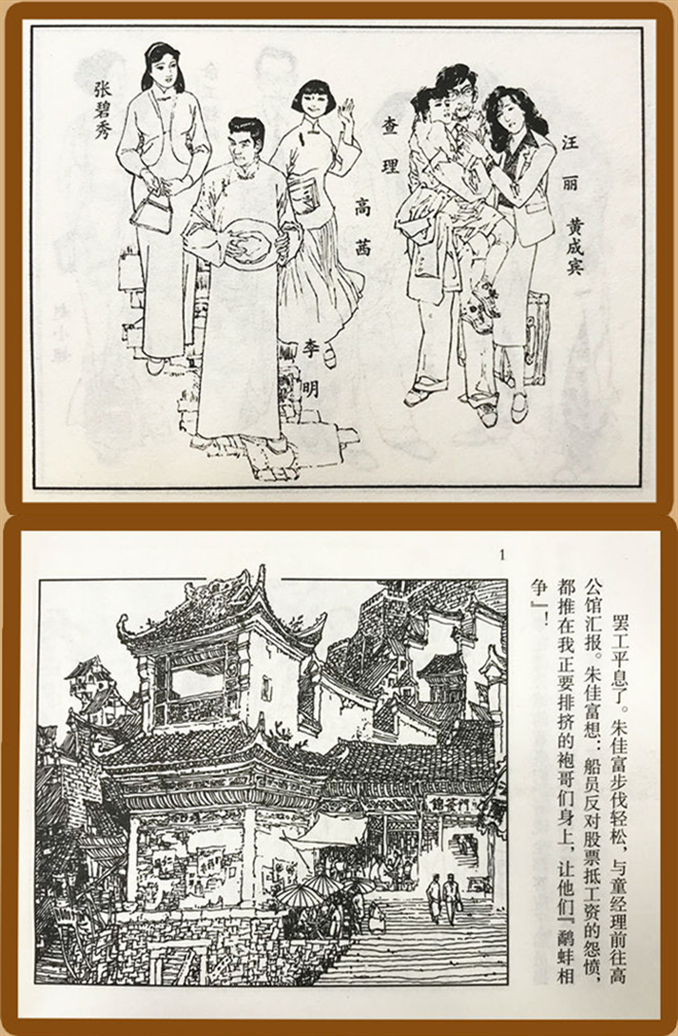 张碧秀
李明
高茜
查理
汪丽
黄成宾
1
罢工平息了。朱佳富步伐轻松，与童经理前往高
公馆汇报。朱佳富想：船员反对股票抵工资的怨愤，
都推在我正要排挤的袍哥们身上，让他们『鹬蚌相
争』！